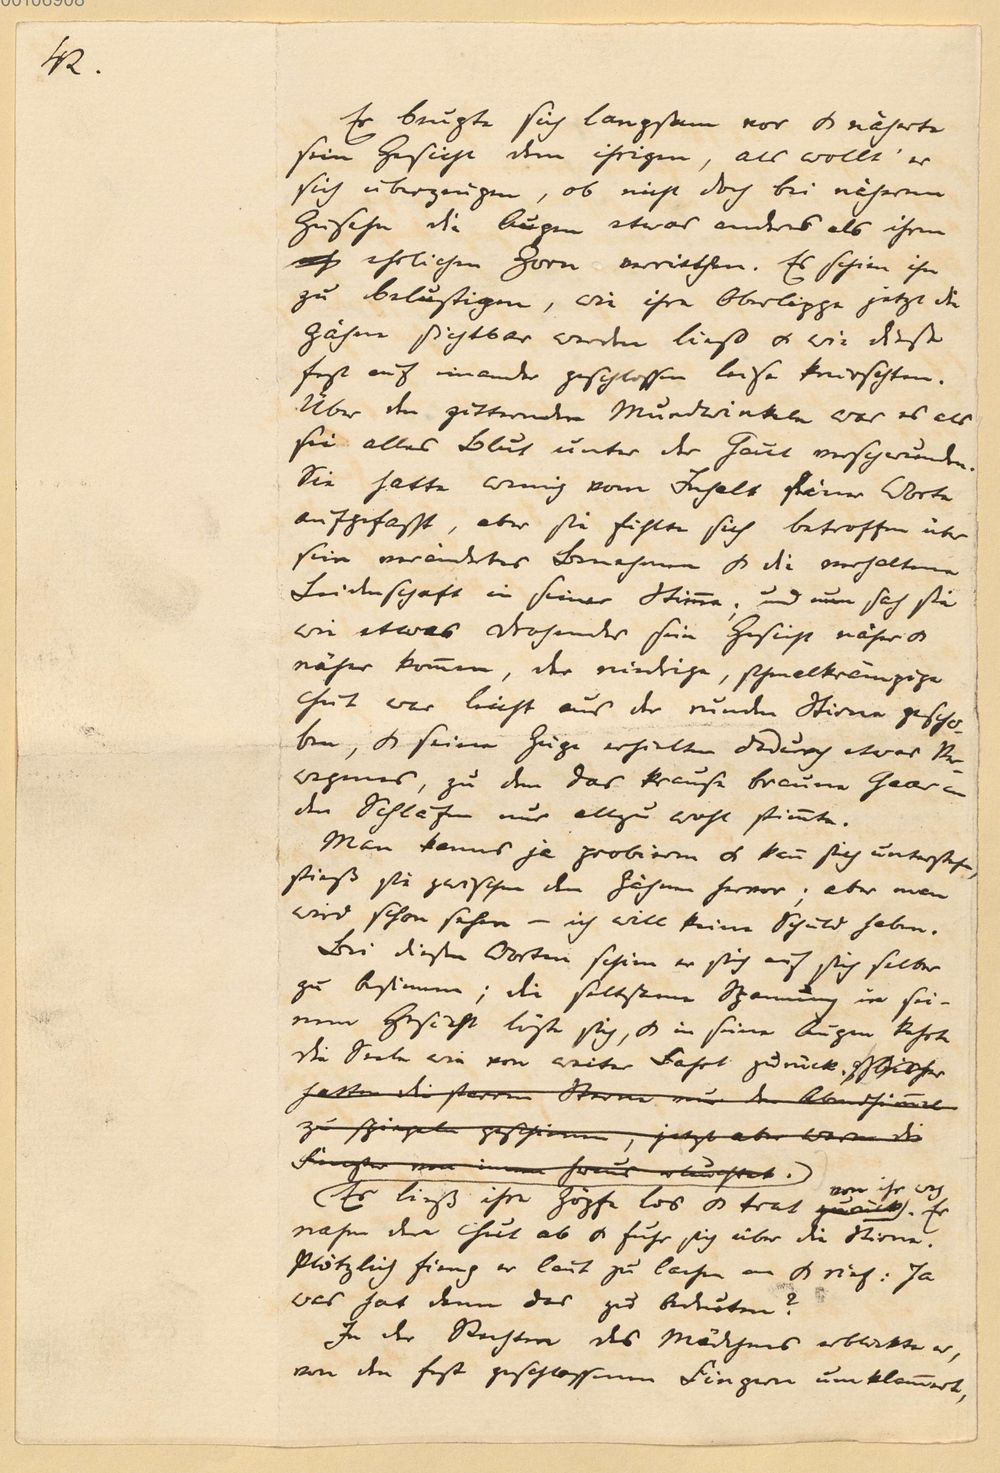 00106908
42.
Er beugte sich langsam vor & näherte
sein Gesicht dem ihrigen, als wollt' er
sich überzeugen, ob nicht doch bei näherem
Zusehn die Augen etwas anderes als ihren
ehrlichen Zorn verriethen. Es schien ihn
zu belustigen, wie ihre Oberlippe jetzt die
Zähne sichtbar werden ließ & wie diese
fest auf einander geschlossen leise knirschten.
Über den zitternden Mundwinkeln war es als
sei alles Blut unter der Haut verschwunden.
Sie hatte wenig vom Inhalt seiner Worte
aufgefasst, aber sie fühlte sich betroffen über
sein verändertes Benehmen & die verhaltene
Leidenschaft in seiner Stim̄e; und nun sah sie
wie etwas Drohendes sein Gesicht näher &
näher kom̄en, der niedrige, schmalkrämpige
Hut war leicht aus der runden Stirne gescho-
ben, & seine Züge erhielten dadurch etwas Ver-
wegenes, zu dem das krause braune Haar an
den Schläfen nur allzu wohl stim̄te.
Man kanns ja probieren & kan̄ sich unterstehn,
stieß sie zwischen den Zähnen hervor; aber man
wird schon sehen – ich will keine Schuld haben.
Bei diesen Worten schien er sich auf sich selber
zu besinnen; die seltsame Spannung in sei-
nem Gesicht löste sich, & in seine Augen kehrte
die Seele wie von weiter Fahrt zurück.
hatten die starren Sterne nur den Abendhim̄el
zu spiegeln geschienen, jetzt aber waren die
Fenster von innen heraus erleuchtet.)
von ihr weg
(Er ließ ihre Zöpfe los & trat zurück). Er
nahm den Hut ab & fuhr sich über die Stirne.
Plötzlich fieng er laut zu lachen an & rief: Ja
was hat denn das zu bedeuten?
In der Rechten des Mädchens erblickte er,
von den fest geschlossenen Fingern umklam̄ert,